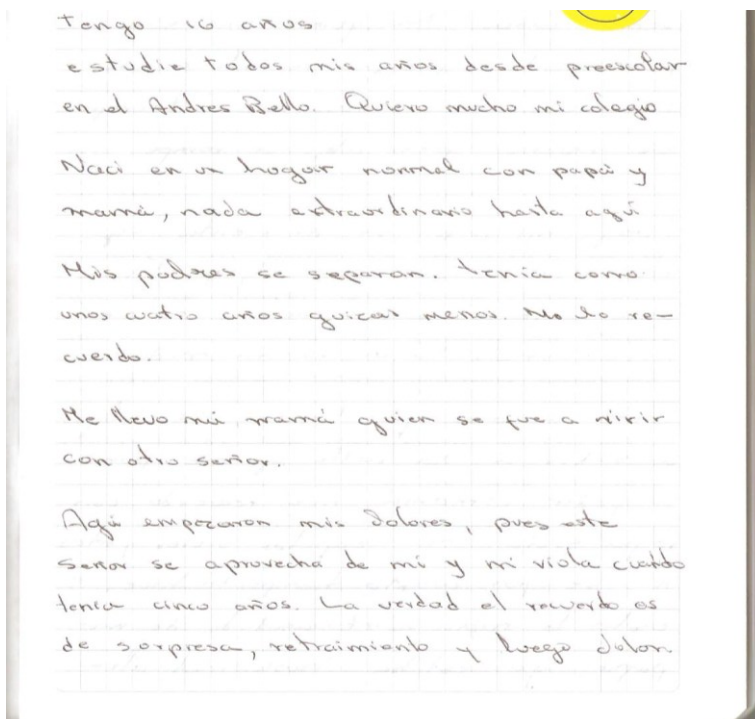 tengo 16 años
estudie todos mis años desde preescolar
en el Andres Bello. Quiero mucho mi colegio
Naci en un hogar normal con papá y
mamá, nada extraordinario hasta aquí
Mis padres se separan. tenia como
unos cuatro años quizas menos. No lo re-
cuerdo.
Me llevo mi mamá quien se fue a vivir
con otro señor.
Aqui empezaron mis dolores, pues este
señor se aprovecha de mí y mi viola cuando
tenia cinco años. La verdad el recuerdo es
de sorpresa, retraimiento y luego dolor.